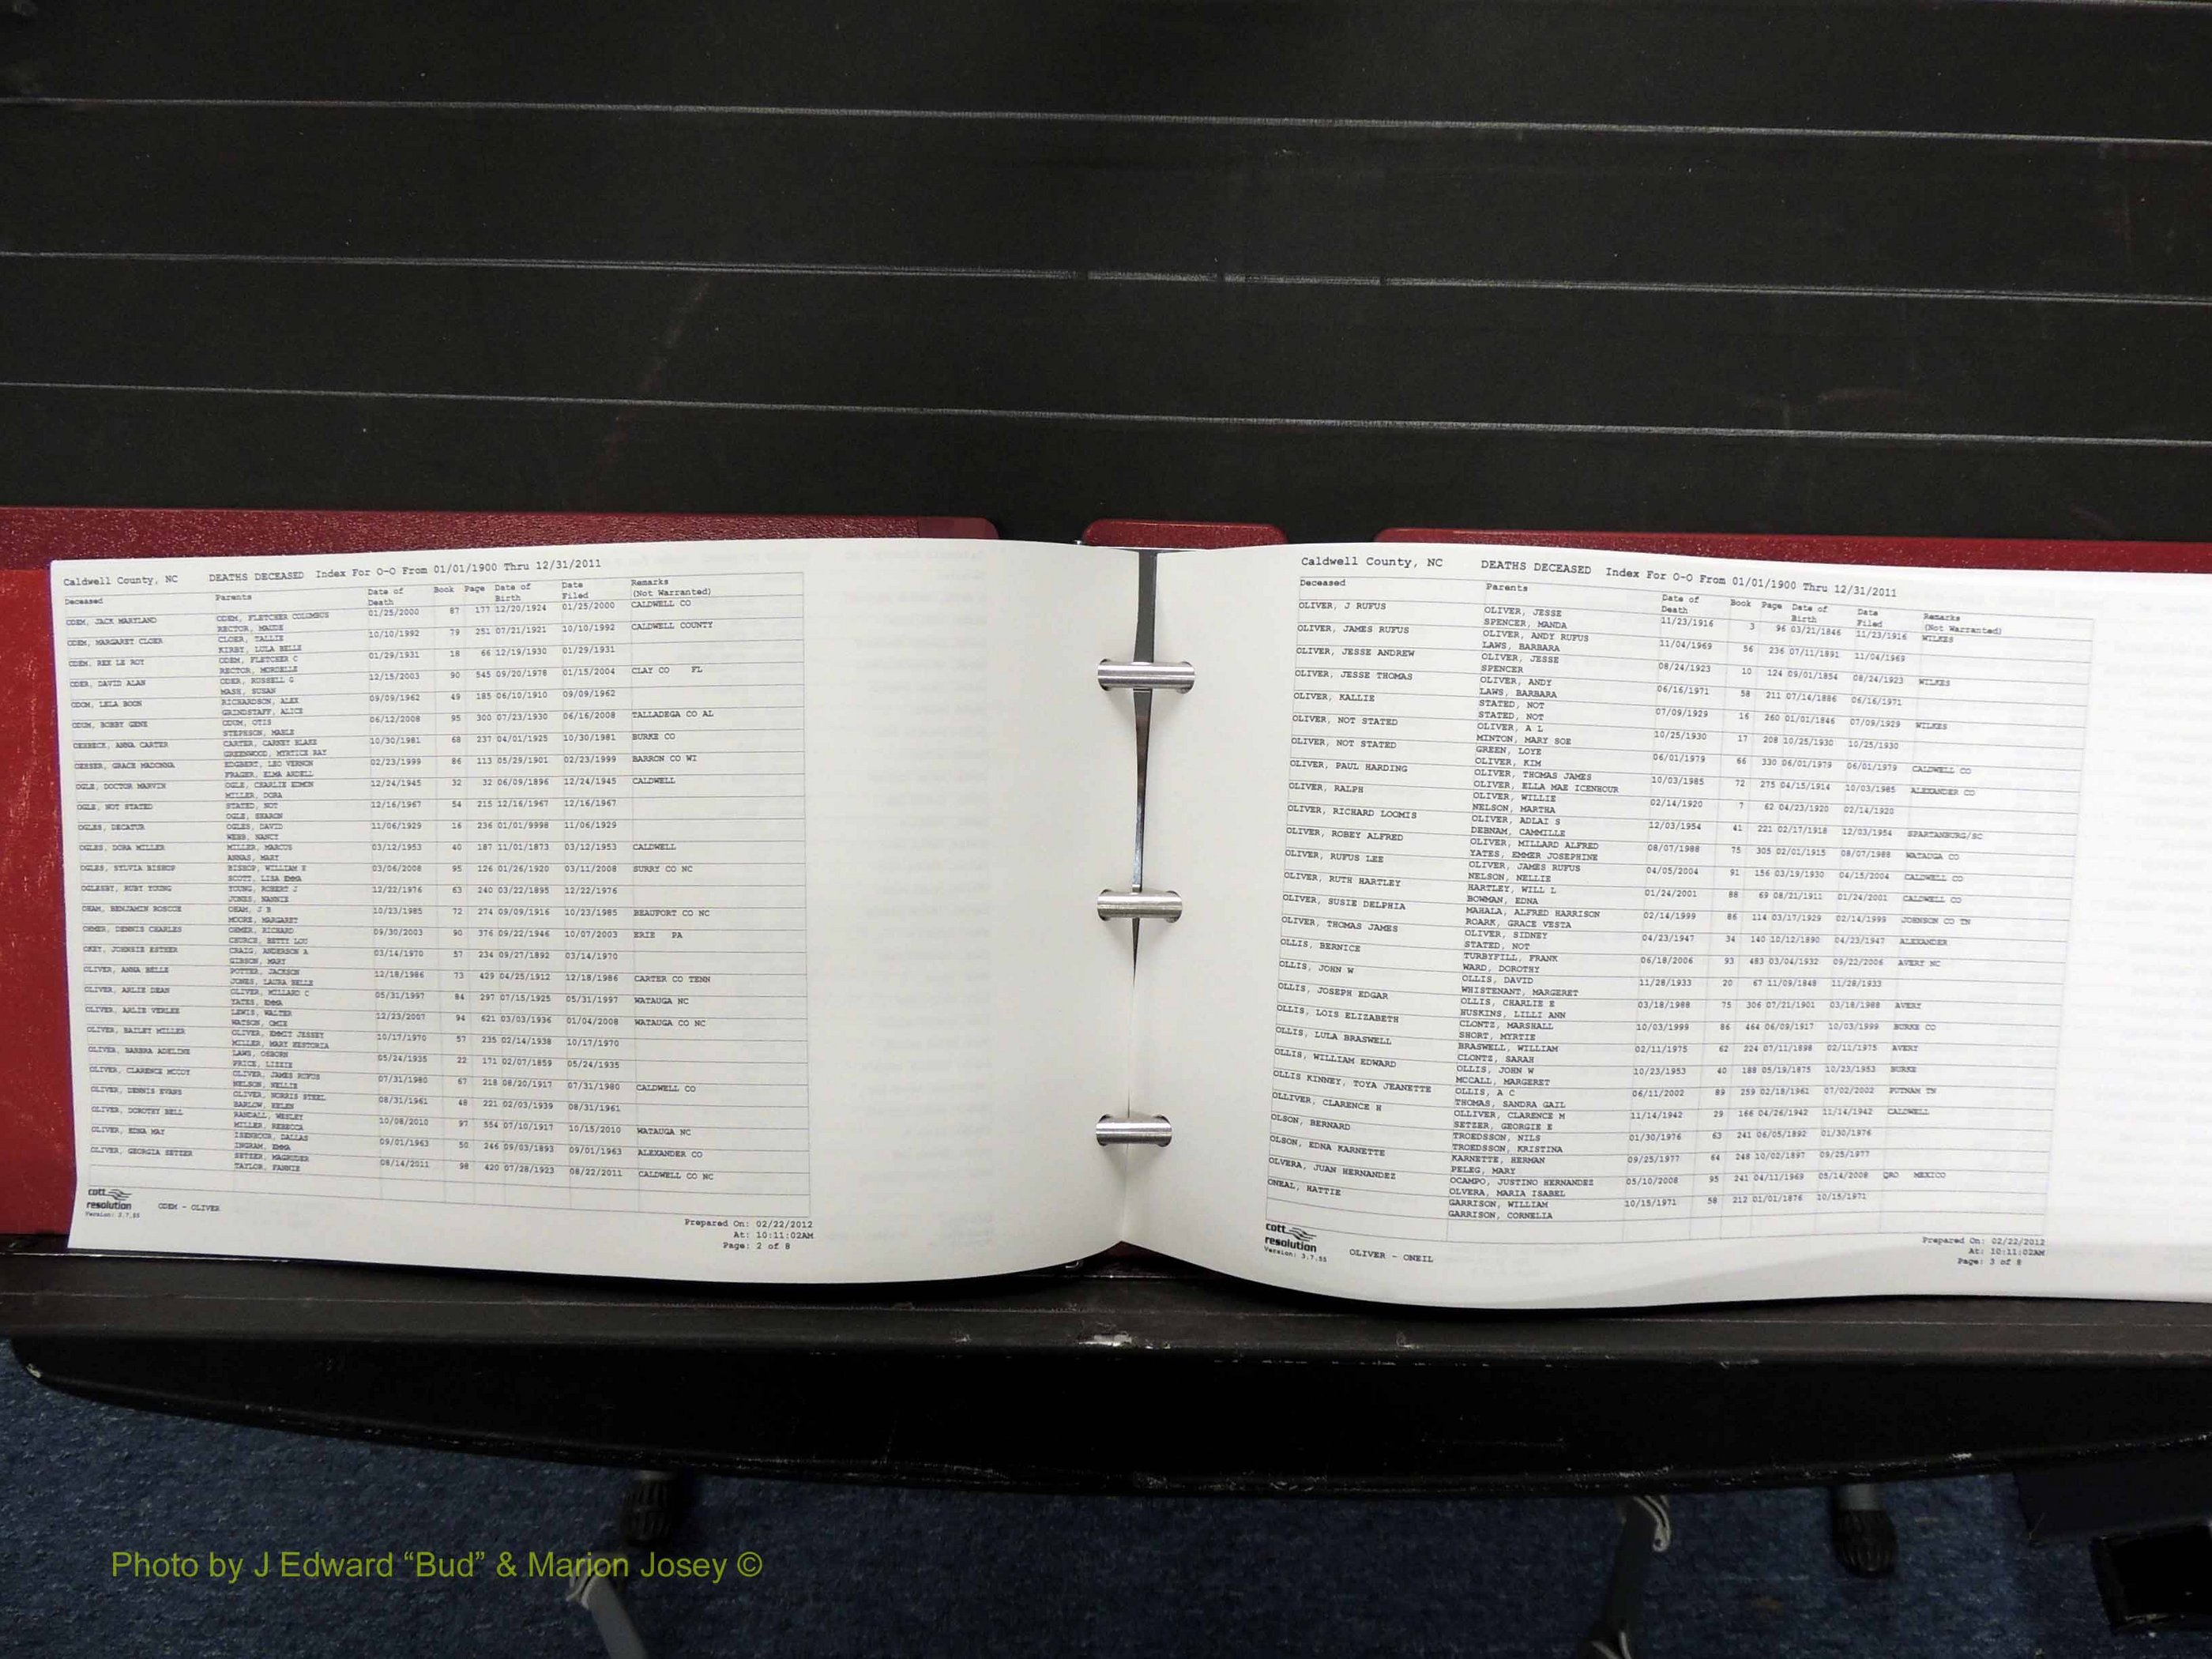 Caldwell County, NC DEATHS DECEASED Index For O-O From 01/01/1900 Thru 12/31/2011
Deceased Parents Date of Death Book Page Date of Birth Date Filed Remarks (Not Warranted)
ODEM, JACK MARYLAND ODEM, FLETCHER COLUMBUS 01/25/2000 87 177 12/20/1924 01/25/2000 CALDWELL CO
RECTOR, MAUDE
ODEM, MARGARET CLOER CLOER, TALLIE 10/10/1992 79 251 07/21/1921 10/10/1992 CALDWELL COUNTY
KIRBY, LULA BELLE
ODEM, REX LE ROY ODEM, FLETCHER C 01/29/1931 18 66 12/19/1930 01/29/1931
RECTOR, MORDELLE
ODER, DAVID ALAN ODER, RUSSELL G 12/15/2003 90 545 09/20/1978 01/15/2004 CLAY CO FL
MASH, SUSAN
ODOM, LELA BOON RICHARDSON, ALEX 09/09/1962 49 185 06/10/1910 09/09/1962
GRINDSTAFF, ALICE
ODUM, BOBBY GENE ODUM, OTIS 06/12/2008 95 300 07/23/1930 06/16/2008 TALLADEGA CO AL
STEPHSON, MABLE
OERBECK, ANNA CARTER CARTER, CARNEY BLAKE 10/30/1981 68 237 04/01/1925 10/30/1981 BURKE CO
GREENWOOD, MYRTICE RAY
OESSER, GRACE MADONNA EDGBERT, LEO VERNON 02/23/1999 86 113 05/29/1901 02/23/1999 BARRON CO WI
FRAGER, ELMA ARDELL
OGLE, DOCTOR MARVIN OGLE, CHARLIE EDMON 12/24/1945 32 32 06/09/1896 12/24/1945 CALDWELL
MILLER, DORA
OGLE, NOT STATED STATED, NOT 12/16/1967 54 215 12/16/1967 12/16/1967
OGLE, SHARON
OGLES, DECATUR OGLES, DAVID 11/06/1929 16 236 01/01/9998 11/06/1929
WEBB, NANCY
OGLES, DORA MILLER MILLER, MARCUS 03/12/1953 40 187 11/01/1873 03/12/1953 CALDWELL
ANNAS, MARY
OGLES, SYLVIA BISHOP BISHOP, WILLIAM E 03/06/2008 95 126 01/26/1920 03/11/2008 SURRY CO NC
SCOTT, LISA EMMA
OGLESBY, RUBY YOUNG YOUNG, ROBERT J 12/22/1976 63 240 03/22/1895 12/22/1976
JONES, NANNIE
OHAM, BENJAMIN ROSCOE OHAM, J B 10/23/1985 72 274 09/09/1916 10/23/1985 BEAUFORT CO NC
MOORE, MARGARET
OHMER, DENNIS CHARLES OHMER, RICHARD 09/30/2003 90 376 09/22/1946 10/07/2003 ERIE PA
CHURCH, BETTY LOU
OKEY, JOHNSIE ESTHER CRAIG, ANDERSON A 03/14/1970 57 234 09/27/1892 03/14/1970
GIBSON, MARY
OLIVER, ANNA BELLE POTTER, JACKSON 12/18/1986 73 429 04/25/1912 12/18/1986 CARTER CO TENN
JONES, LAURA BELLE
OLIVER, ARLIE DEAN OLIVER, MILLARD C 05/31/1997 84 297 07/15/1925 05/31/1997 WATAUGA NC
YATES, EMMA
OLIVER, ARLIE VERLEE LEWIS, WALTER 12/23/2007 94 621 03/03/1936 01/04/2008 WATAUGA CO NC
WATSON, OMIE
OLIVER, BAILEY MILLER OLIVER, EMMIT JESSEY 10/17/1970 57 235 02/14/1938 10/17/1970
MILLER, MARY
OLIVER, BARBRA ADELINE LAWS, OSBORN 05/24/1935 22 171 02/07/1859 05/24/1935
PRICE, LIZZIE
OLIVER, CLARENCE MCCOY OLIVER, JAMES RUFUS 07/31/1980 67 218 08/20/1917 07/31/1980 CALDWELL CO
NELSON, NELLIE
OLIVER, DENNIS EVANS OLIVER, NORRIS STEEL 08/31/1961 48 221 02/03/1939 08/31/1961
BARLOW, HELEN
OLIVER, DOROTHY BELL RANDALL, WESLEY 10/08/2010 97 554 07/10/1917 10/15/2010 WATAUGA NC
MILLER, REBECCA
OLIVER, EDNA MAY ISENHOUR, DALLAS 09/01/1963 50 246 09/03/1893 09/01/1963 ALEXANDER CO
INGRAM, EMMA
OLIVER, GEORGIA SETZER SETZER, MAGRUDER 08/14/2011 98 420 07/28/1923 08/22/2011 CALDWELL CO NC
TAYLOR, FANNIE
cott
resolution
Version: 3.7.55
ODEM - OLIVER
Prepared On: 02/22/2012
At: 10:11:02AM
Page: 2 of 8
Caldwell County, NC DEATHS DECEASED Index For O-O From 01/01/1900 Thru 12/31/2011
Deceased Parents Date of Death Book Page Date of Birth Date Filed Remarks (Not Warranted)
OLIVER, J RUFUS OLIVER, JESSE 11/23/1916 3 96 03/21/1846 11/23/1916 WILKES
SPENCER, MANDA
OLIVER, JAMES RUFUS OLIVER, ANDY RUFUS 11/04/1969 56 236 07/11/1891 11/04/1969
LAWS, BARBARA
OLIVER, JESSE ANDREW OLIVER, JESSE 08/24/1923 10 124 09/01/1854 08/24/1923 WILKES
SPENCER
OLIVER, JESSE THOMAS OLIVER, ANDY 06/16/1971 58 211 07/14/1886 06/16/1971
LAWS, BARBARA
OLIVER, KALLIE STATED, NOT 07/09/1929 16 260 01/01/1846 07/09/1929 WILKES
STATED, NOT
OLIVER, NOT STATED OLIVER, A L 10/25/1930 17 208 10/25/1930 10/25/1930
MINTON, MARY SOE
OLIVER, NOT STATED GREEN, LOYE 06/01/1979 66 330 06/01/1979 06/01/1979 CALDWELL CO
OLIVER, KIM
OLIVER, PAUL HARDING OLIVER, THOMAS JAMES 10/03/1985 72 275 04/15/1914 10/03/1985 ALEXANDER CO
OLIVER, ELLA MAE ICENHOUR
OLIVER, RALPH OLIVER, WILLIE 02/14/1920 7 62 04/23/1920 02/14/1920
NELSON, MARTHA
OLIVER, RICHARD LOOMIS OLIVER, ADLAI S 12/03/1954 41 221 02/17/1918 12/03/1954 SPARTANBURG/SC
DEBNAM, CAMMILLE
OLIVER, ROBEY ALFRED OLIVER, MILLARD ALFRED 08/07/1988 75 305 02/01/1915 08/07/1988 WATAUGA CO
YATES, EMMER JOSEPHINE
OLIVER, RUFUS LEE OLIVER, JAMES RUFUS 04/05/2004 91 156 03/19/1930 04/15/2004 CALDWELL CO
NELSON, NELLIE
OLIVER, RUTH HARTLEY HARTLEY, WILL L 01/24/2001 88 69 08/21/1911 01/24/2001 CALDWELL CO
BOWMAN, EDNA
OLIVER, SUSIE DELPHIA MAHALA, ALFRED HARRISON 02/14/1999 86 114 03/17/1929 02/14/1999 JOHNSON CO TN
ROARK, GRACE VESTA
OLIVER, THOMAS JAMES OLIVER, SIDNEY 04/23/1947 34 140 10/12/1890 04/23/1947 ALEXANDER
STATED, NOT
OLLIS, BERNICE TURBYFILL, FRANK 06/18/2006 93 483 03/04/1932 09/22/2006 AVERY NC
WARD, DOROTHY
OLLIS, JOHN W OLLIS, DAVID 11/28/1933 20 67 11/09/1848 11/28/1933
WHISTENANT, MARGERET
OLLIS, JOSEPH EDGAR OLLIS, CHARLIE E 03/18/1988 75 306 07/21/1901 03/18/1988 AVERY
HUSKINS, LILLI ANN
OLLIS, LOIS ELIZABETH CLONTZ, MARSHALL 10/03/1999 86 464 06/09/1917 10/03/1999 BURKE CO
SHORT, MYRTIE
OLLIS, LULA BRASWELL BRASWELL, WILLIAM 02/11/1975 62 224 07/11/1898 02/11/1975 AVERY
CLONTZ, SARAH
OLLIS, WILLIAM EDWARD OLLIS, JOHN W 10/23/1953 40 188 05/19/1875 10/23/1953 BURKE
MCCALL, MARGERET
OLLIS KINNEY, TOYA JEANETTE OLLIS, A C 06/11/2002 89 259 02/18/1961 07/02/2002 PUTNAM TN
THOMAS, SANDRA GAIL
OLLIVER, CLARENCE H OLLIVER, CLARENCE M 11/14/1942 29 166 04/26/1942 11/14/1942 CALDWELL
SETZER, GEORGIE E
OLSON, BERNARD TROEDSSON, NILS 01/30/1976 63 241 06/05/1892 01/30/1976
TROEDSSON, KRISTINA
OLSON, EDNA KARNETTE KARNETTE, HERMAN 09/25/1977 64 248 10/02/1897 09/25/1977
PELEG, MARY
OLVERA, JUAN HERNANDEZ OCAMPO, JUSTINO HERNANDEZ 05/10/2008 95 241 04/11/1969 05/14/2008 QRO MEXICO
OLVERA, MARIA ISABEL
ONEAL, HATTIE GARRISON, WILLIAM 10/15/1971 58 212 01/01/1876 10/15/1971
GARRISON, CORNELIA
cott
resolution
Version: 3.7.55
OLIVER - ONEIL
Prepared On: 02/22/2012
At: 10:11:02AM
Page: 3 of 8
Photo by J Edward “Bud” & Marion Josey ©